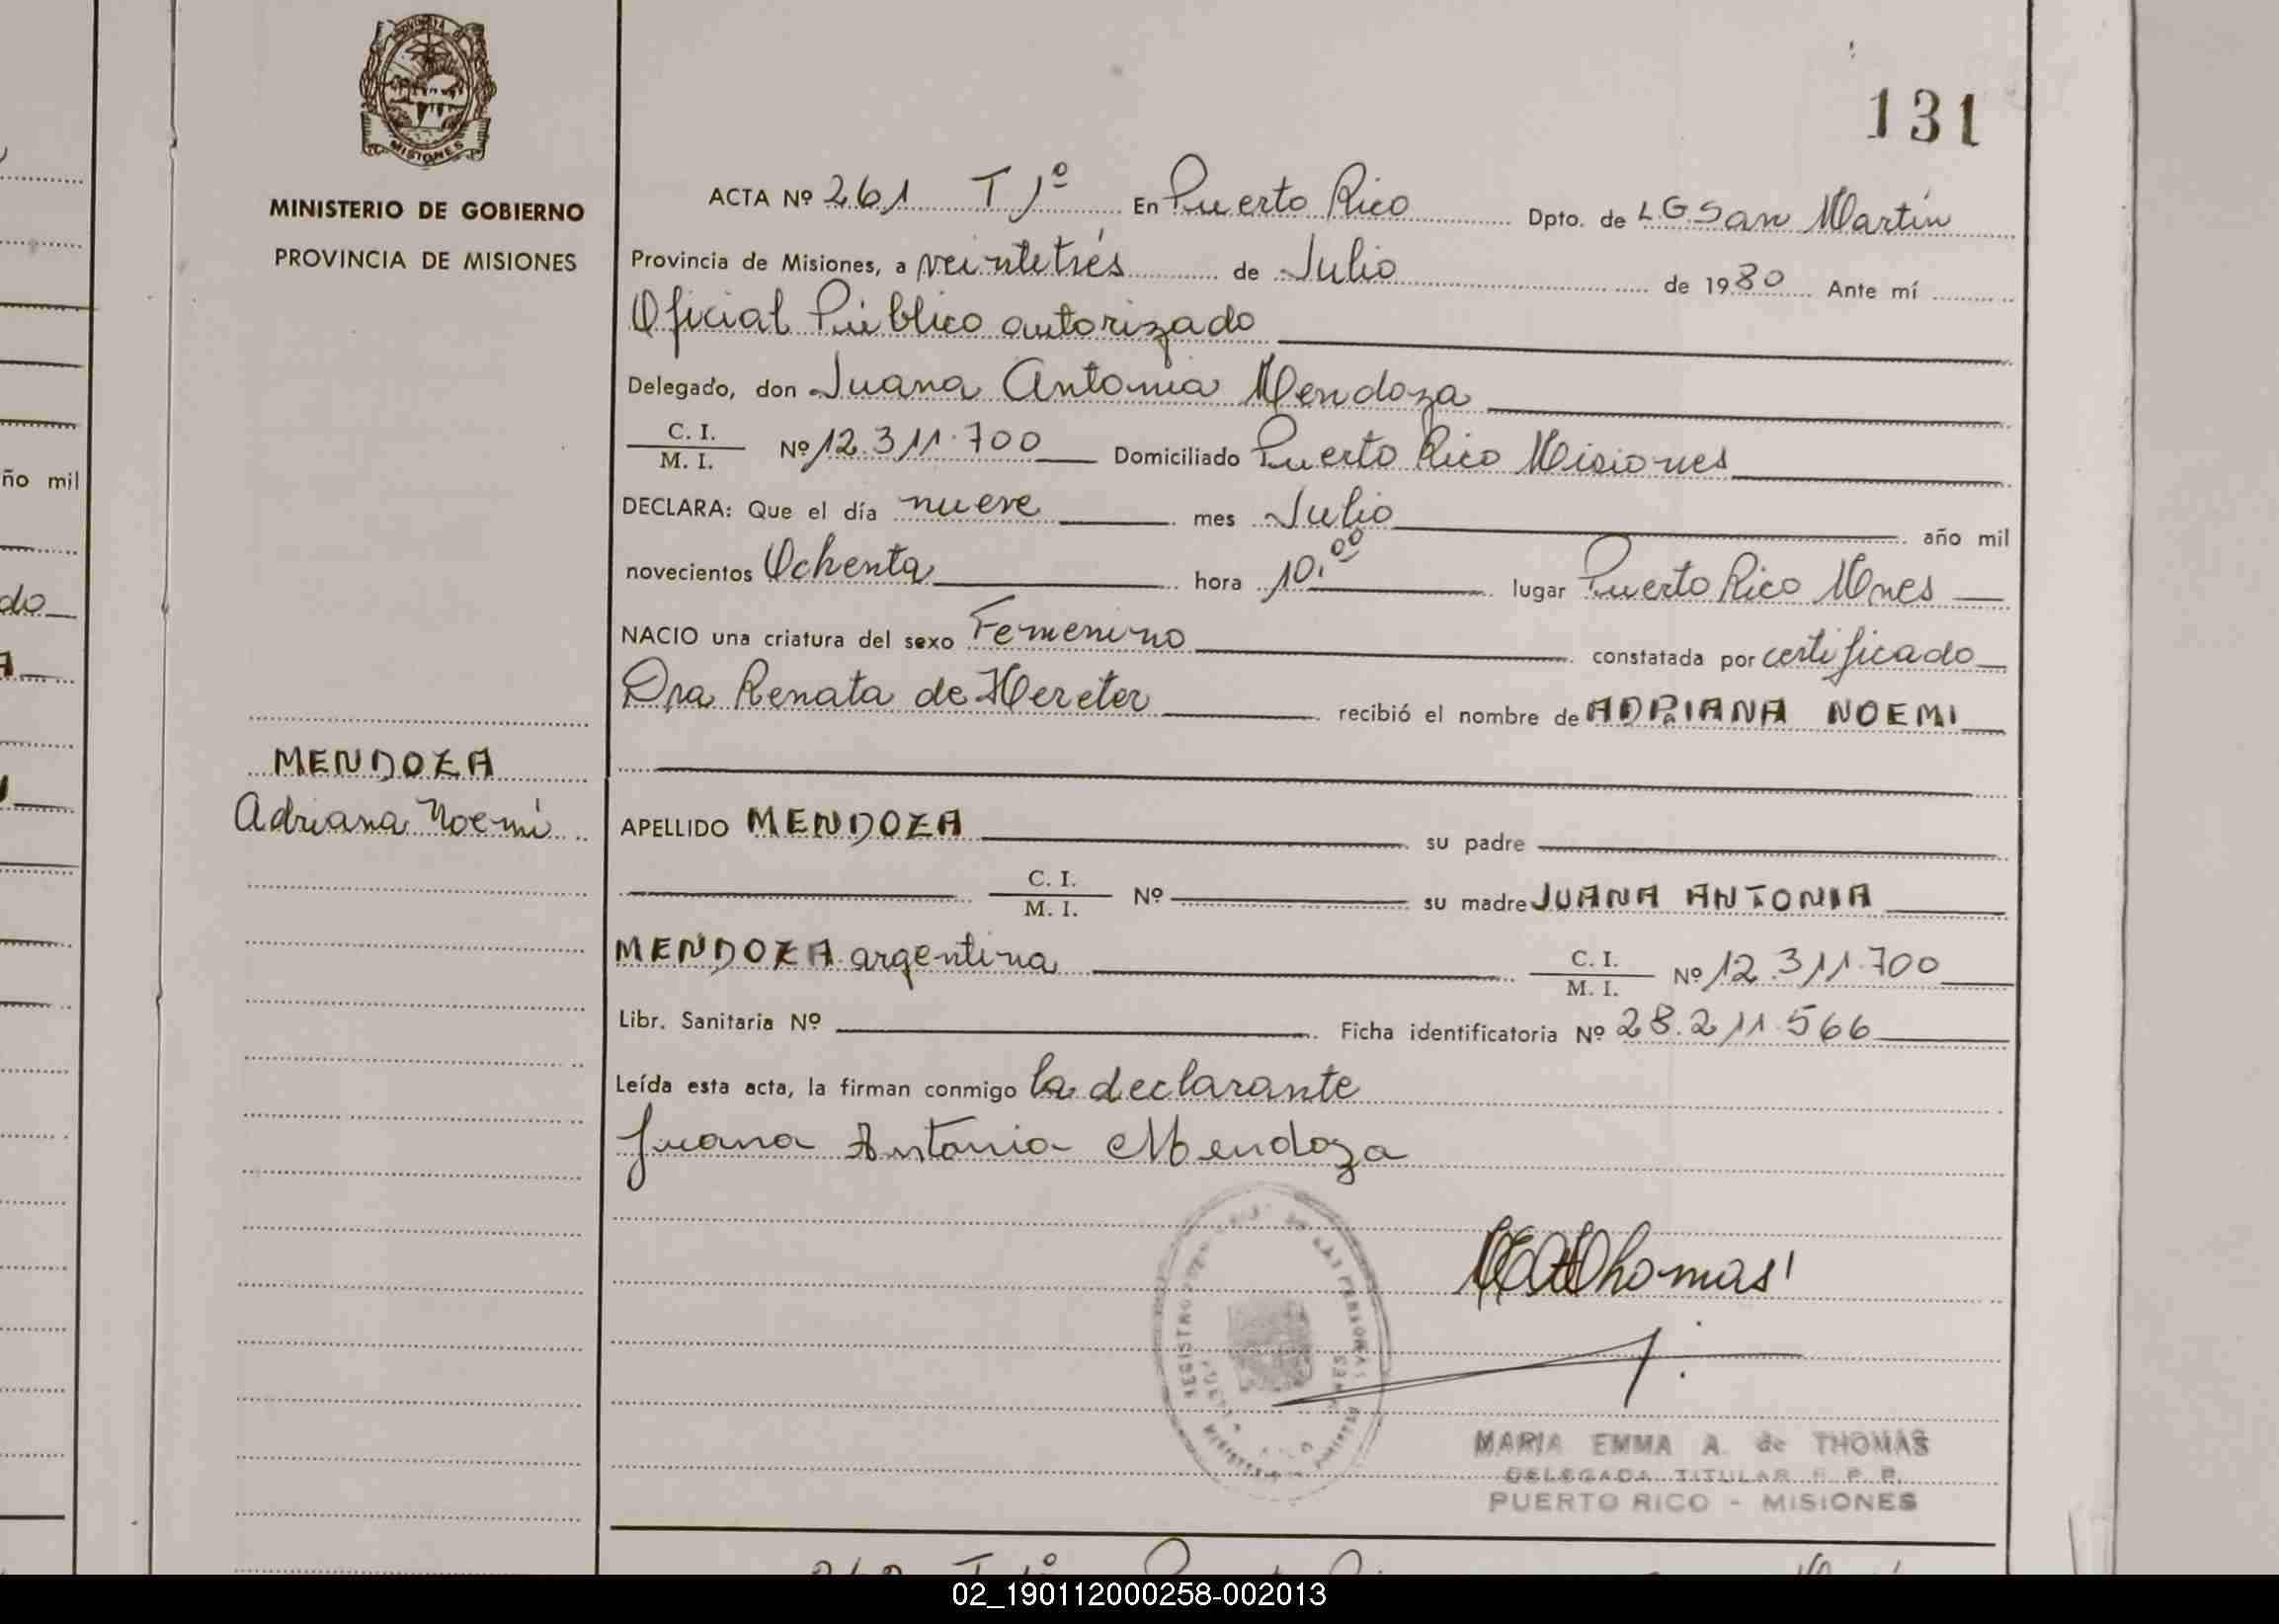 PROVINCIA
MISIONES
MINISTERIO DE GOBIERNO
PROVINCIA DE MISIONES
131
ACTA Nº 261 T 1º En Puerto Rico Dpto. de LG San Martín
Provincia de Misiones, a veintetrés de Julio de 1980 Ante mí
Oficial Público autorizado
Delegado, don Juana Antonia Mendoza
C. I.
M. I. Nº 12.311.700 Domiciliado Puerto Rico Misiones
DECLARA: Que el día nueve mes Julio año mil
novecientos Ochenta hora 10,00 lugar Puerto Rico Mnes
NACIO una criatura del sexo Femenino constatada por certificado
Dra Renata de Hereter recibió el nombre de ADRIANA NOEMI
MENDOZA
Adriana Noemí
APELLIDO MENDOZA su padre
C. I.
M. I. Nº su madre JUANA ANTONIA
MENDOZA argentina C. I.
M. I. Nº 12.311.700
Libr. Sanitaria Nº Ficha identificatoria Nº 28.211.566
Leída esta acta, la firman conmigo la declarante
Juana Antonia Mendoza
Thomas
REGISTRO DE LAS PERSONAS
MARIA EMMA A. de THOMAS
DELEGADA TITULAR R. P. P.
PUERTO RICO - MISIONES
ño mil
do
02_190112000258-002013